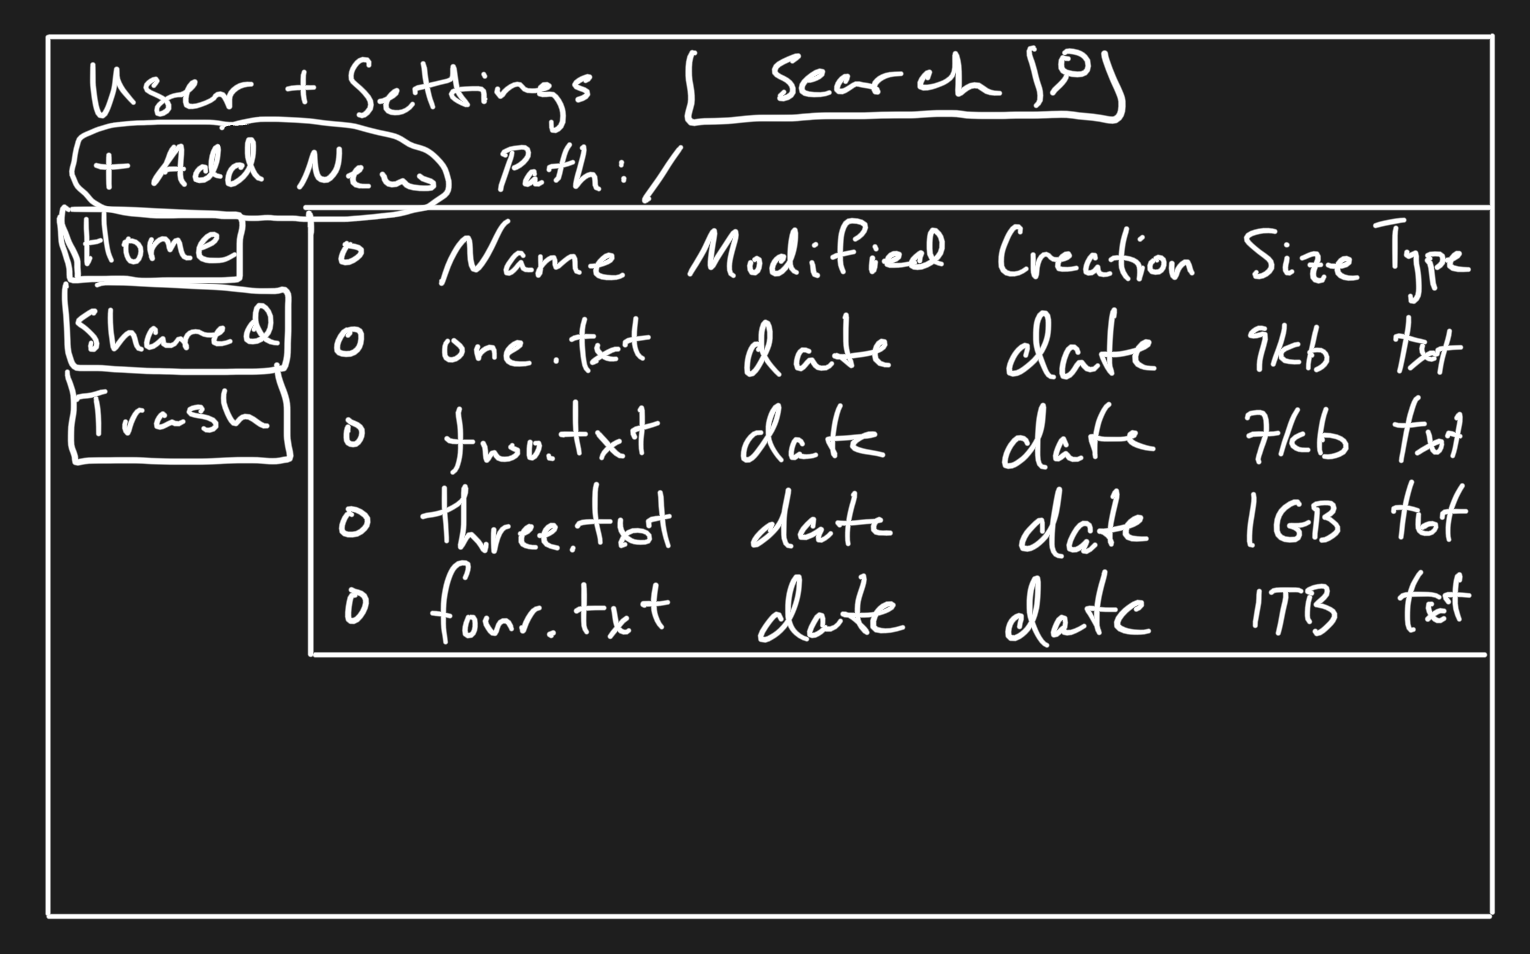 User + Settings Search
+ Add New Path: /
Home
Shared
Trash
Name Modified Creation Size Type
one.txt date date 9kb txt
two.txt date date 7kb txt
three.txt date date 1GB txt
four.txt date date 1TB txt